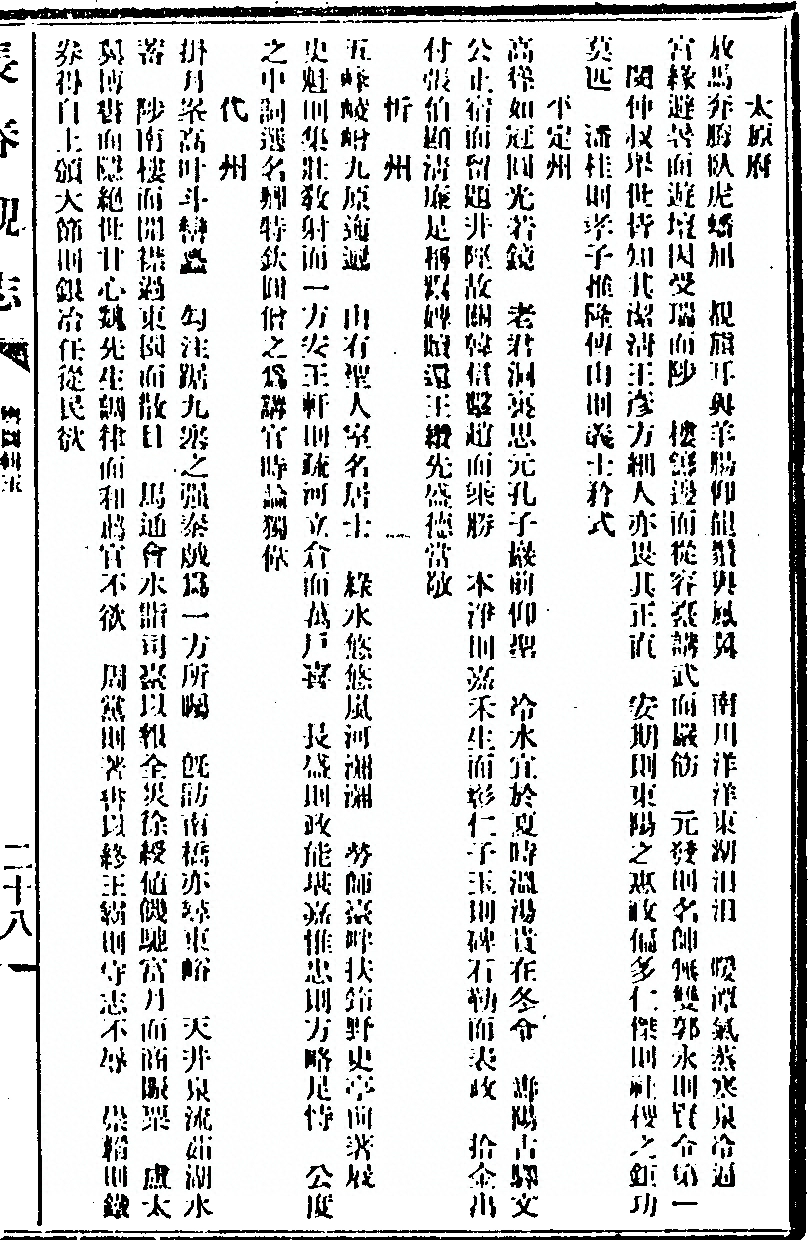 太原府
放馬奔騰臥虎蟠屈　視旗耳與羊腸仰龍鬚與鳳舞　南川洋洋東湖汨汨　暖潭氣蒸寒泉冷冽
宮緣避暑而遊壇因受瑞而陟　樓無邊而從容臺講武而嚴飭　元發則名帥無雙郭永則賢令第一
閔仲叔舉世皆知其潔清王彥方細人亦畏其正直　安期則東陽之惠政偏多仁傑則社稷之鉅功
莫匹　潘桂則孝子推隆傅山則義士矜式
平定州
高崒如冠圓光若鏡　老君洞裏思元孔子巖前仰聖　冷水宜於夏時溫湯貴在冬令　壽陽古驛文
公止宿而留題井陘故關韓信擊趙而乘勝　本淨則嘉禾生而彰仁子玉則碑石勒而表政　拾金出
付張伯顯清廉是稱嫁婢贖還王纘先盛德當敬
忻　州
五峰岐嶒九原迤邐　山有聖人室名居士　綠水悠悠嵐河瀰瀰　勞師臺畔扶筇野史亭前著屐
史魁則集壯教射而一方安王軒則疏河立倉而萬戶喜　長盛則政能堪嘉惟忠則方略足恃　公度
之中詞選名輝特欽圓僧之爲講官時論獨偉
代　州
掛月峯高叶斗巒矗　勾注踞九塞之强秦戲爲一方所矚　旣訪南橋亦尋東峪　天井泉流茹湖水
蓄　陟南樓而開襟過東園而散目　馬通會水詣司臺以報全災徐綬值饑馳當月而商賑粟　盧太
與博書而隱絕世甘心魏先生調律而和鳴官不欲　周黨則著書以終王霸則守志不辱　崇韜則鐵
券得自上頒大節則銀冶任從民欲
長春觀志
二十八